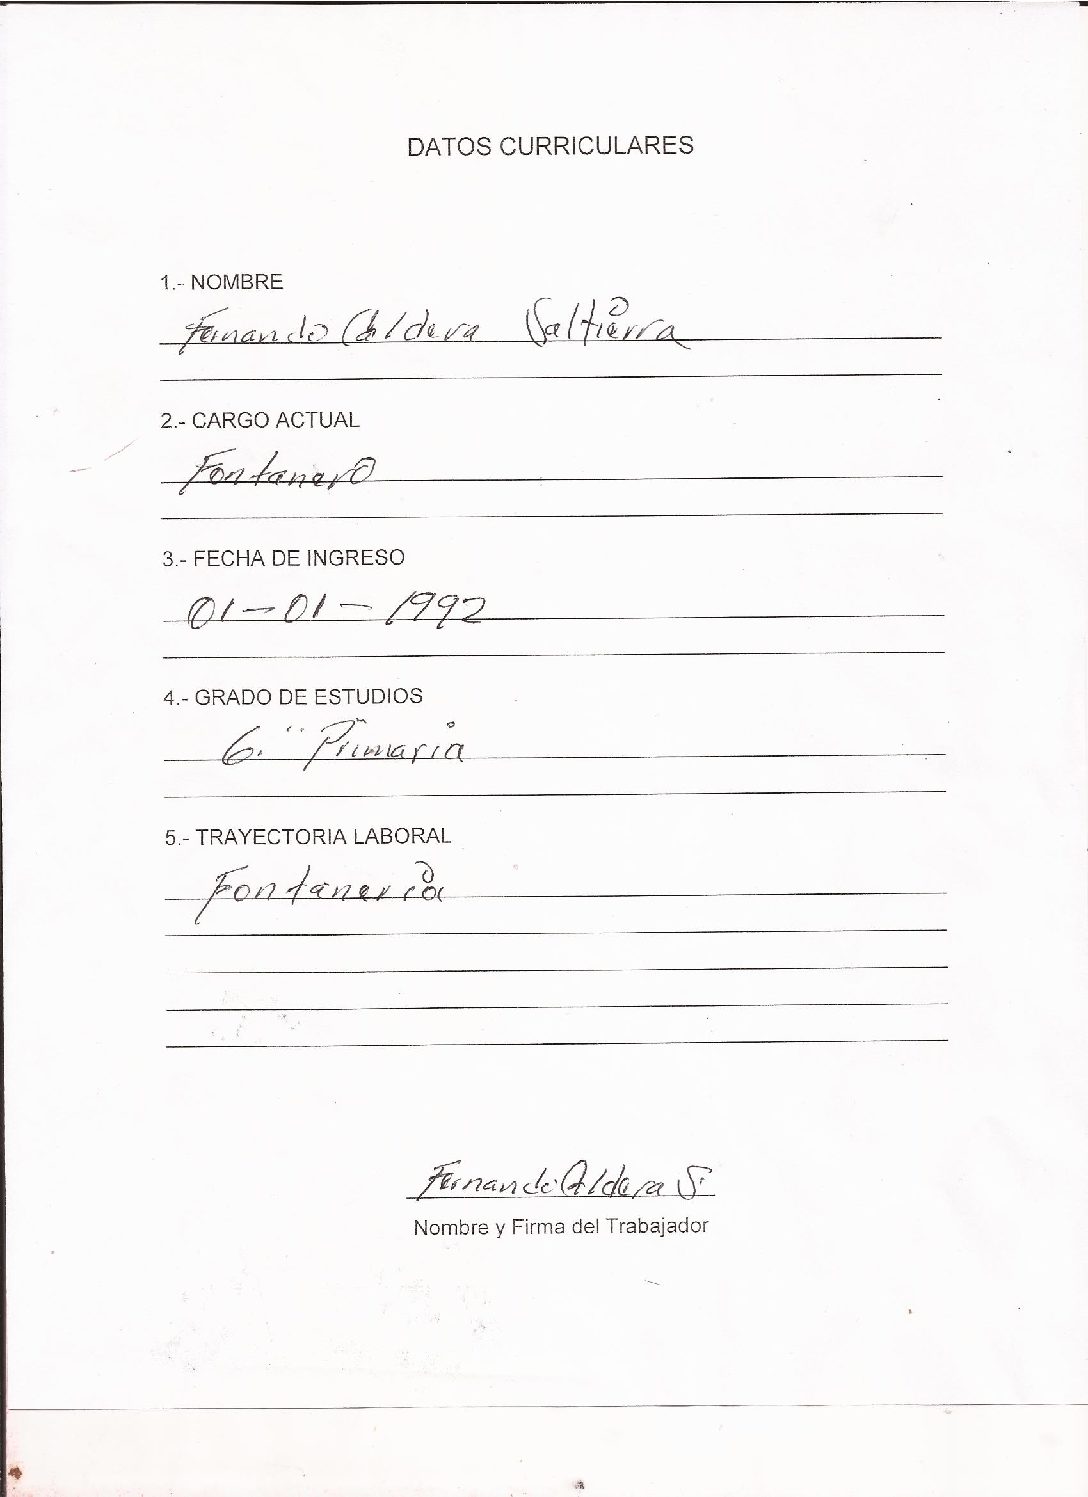 DATOS CURRICULARES
1.- NOMBRE
Fernando Caldera Saltierra
2.- CARGO ACTUAL
Fontanero
3.- FECHA DE INGRESO
01-01-1992
4.- GRADO DE ESTUDIOS
6. Primaria
5.- TRAYECTORIA LABORAL
Fontaneria
Fernando Caldera S.
Nombre y Firma del Trabajador